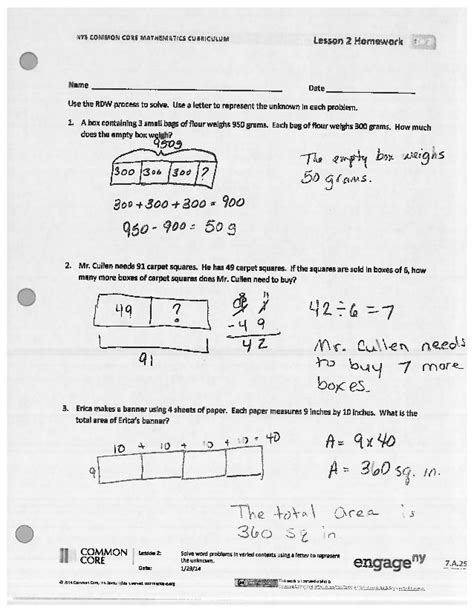 NYS COMMON CORE MATHEMATICS CURRICULUM
Lesson 2 Homework
Name
Date
Use the RDW process to solve. Use a letter to represent the unknown in each problem.
1. A box containing 3 small bags of flour weighs 950 grams. Each bag of flour weighs 300 grams. How much
does the empty box weigh?
950g
300 300 300 ?
300 + 300 + 300 = 900
950 - 900 = 50 g
The empty box weighs
50 grams.
2. Mr. Cullen needs 91 carpet squares. He has 49 carpet squares. If the squares are sold in boxes of 6, how
many more boxes of carpet squares does Mr. Cullen need to buy?
49 ?
91
8 11
9 1
- 4 9
4 2
42 ÷ 6 = 7
Mr. Cullen needs
to buy 7 more
boxes.
3. Erica makes a banner using 4 sheets of paper. Each paper measures 9 inches by 10 inches. What is the
total area of Erica's banner?
10 + 10 + 10 + 10 = 40
9
A = 9 x 40
A = 360 sq. in.
The total area is
360 sq in
COMMON
CORE
Lesson 2:
Solve word problems in varied contexts using a letter to represent
the unknown.
Date:
1/28/14
engage ny
7.A.25